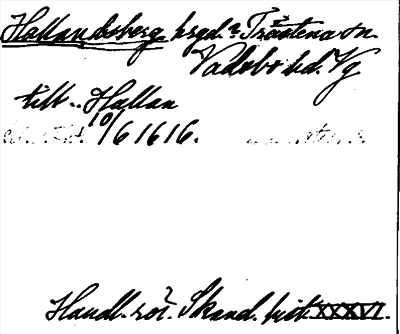 Hallandsberg hrgd. i Trästena sn.
Vadsbo hd. Vg
tillt. Hallan
10/6 1616.
Handl. rör. Skand. hist. XXXVI.